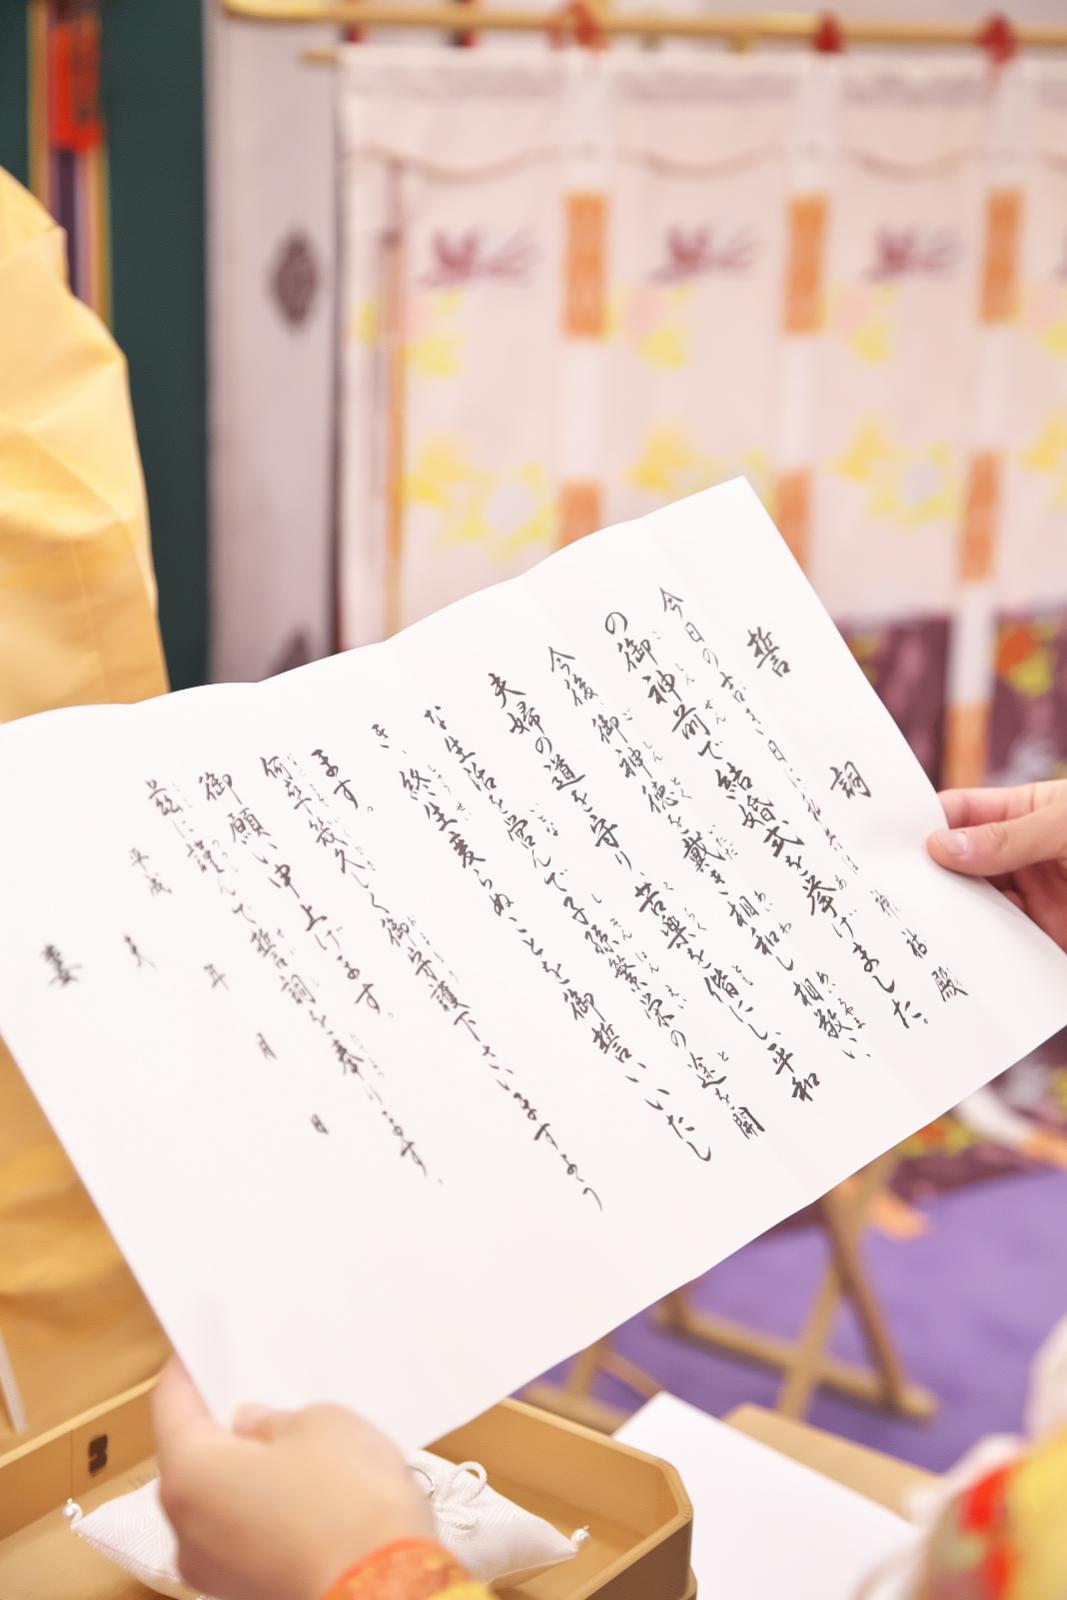 誓詞
今日の吉き日に私共は神祐殿
の御神前で結婚式を挙げました。
今後、御神徳を戴き相和し相敬い、
夫婦の道を守り、苦楽を偕にし、平和
な生活を営んで子孫繁栄の途を開
き、終生変らぬことを御誓いいたし
ます。
何卒幾久しく御守護下さいますよう
御願い申上げます。
茲に謹んで誓詞を奉ります。
平成 年 月 日
夫
妻